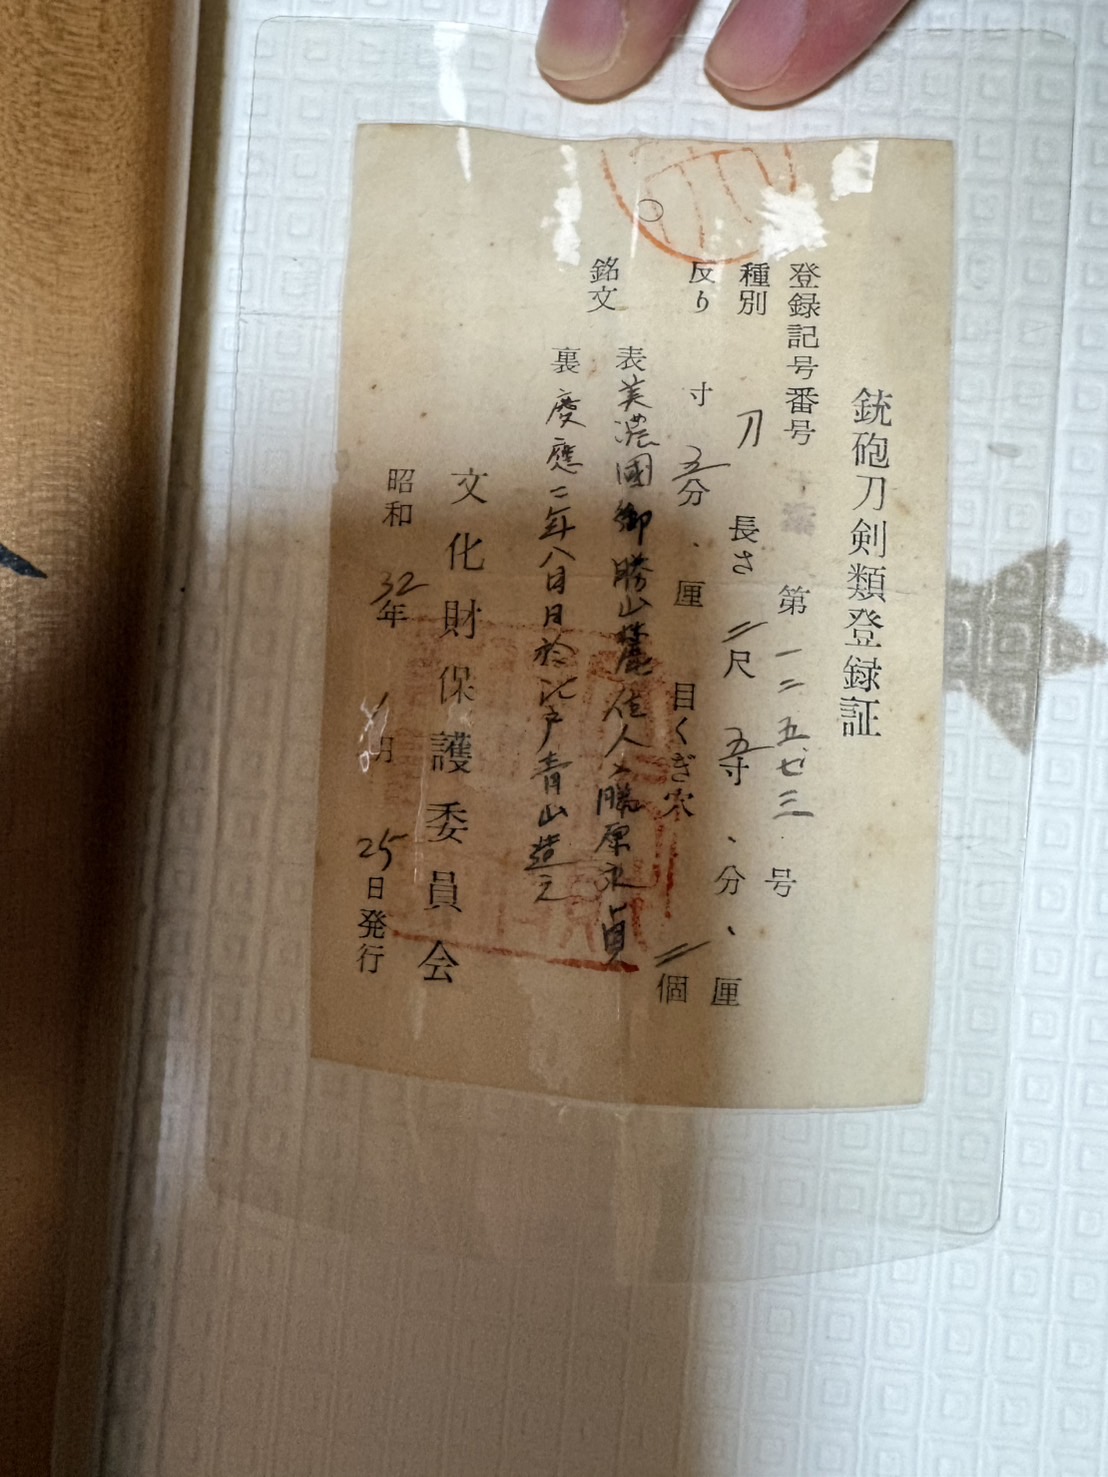 銃砲刀剣類登録証
登録記号番号 第一二五七三号
種別 刀 長さ 二尺 五寸 、分 、厘
反り 寸 五分 、厘 目くぎ穴 二個
銘文 表 美濃國御勝山麓住人 藤原永貞
裏 慶應二年八月日於江戸青山造之
文化財保護委員会
昭和 32年 月 25日発行